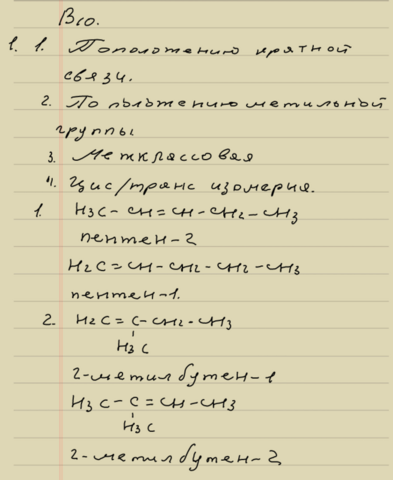 В10.
1. 1. По положению кратной
связи.
2. По пользению метильной
группы
3. Межклассовая
4. Цис/транс изомерия.
1. H3C-CH=CH-CH2-CH3
пентен-2
H2C=CH-CH2-CH2-CH3
пентен-1.
2. H2C=C-CH2-CH3
H3C
2-метилбутен-1
H3C-C=CH-CH3
H3C
2-метилбутен-2